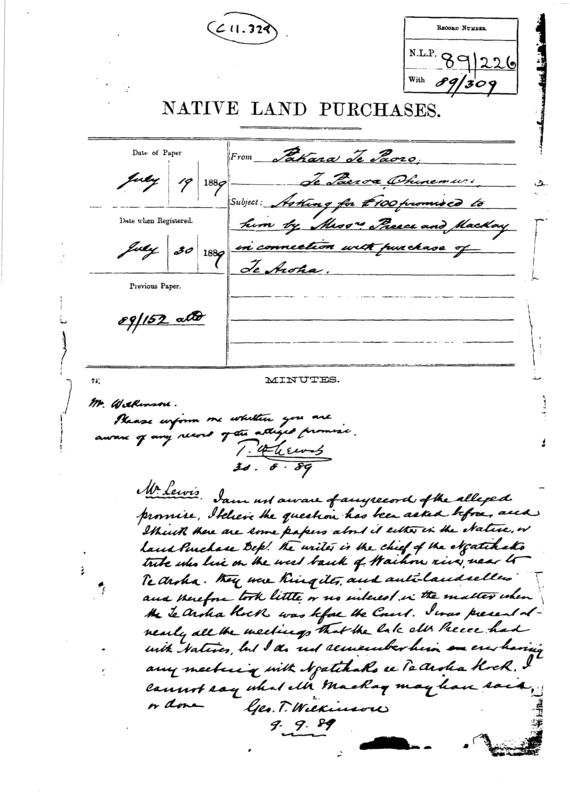 C 11.328
RECORD NUMBER.
N.L.P. 89/226
With 89/309
NATIVE LAND PURCHASES.
Date of Paper
July 19 1889
From Pakara Te Paoro,
Te Paeroa, Ohinemuri,
Subject: Asking for £100 promised to
him by Messrs Preece and Mackay
in connection with purchase of
Te Aroha.
Date when Registered.
July 30 1889
Previous Paper.
89/152
MINUTES.
Mr. Wilkinson.
Please inform me whether you are
aware of any record of the alleged promise.
T. W. Lewis
89
Mr Lewis. I am not aware of any record of the alleged
promise, I believe the question has been asked before, and
I think there are some papers about it either in the Native, or
Land Purchase Dept. The writer is the chief of the Ngatihako
tribe who live on the west bank of Waihou river, near to
Te Aroha. They were Kingites, and anti landsellers
and therefore took little or no interest in the matter when
the Te Aroha Block was before the Court. I was present at
nearly all the meetings that the late Mr Preece had
with Natives, but I do not remember him ever having
any meeting with Ngatihako re Te Aroha Block. I
cannot say what Mr Mackay may have said,
or done
Geo. T. Wilkinson
9. 9. 89